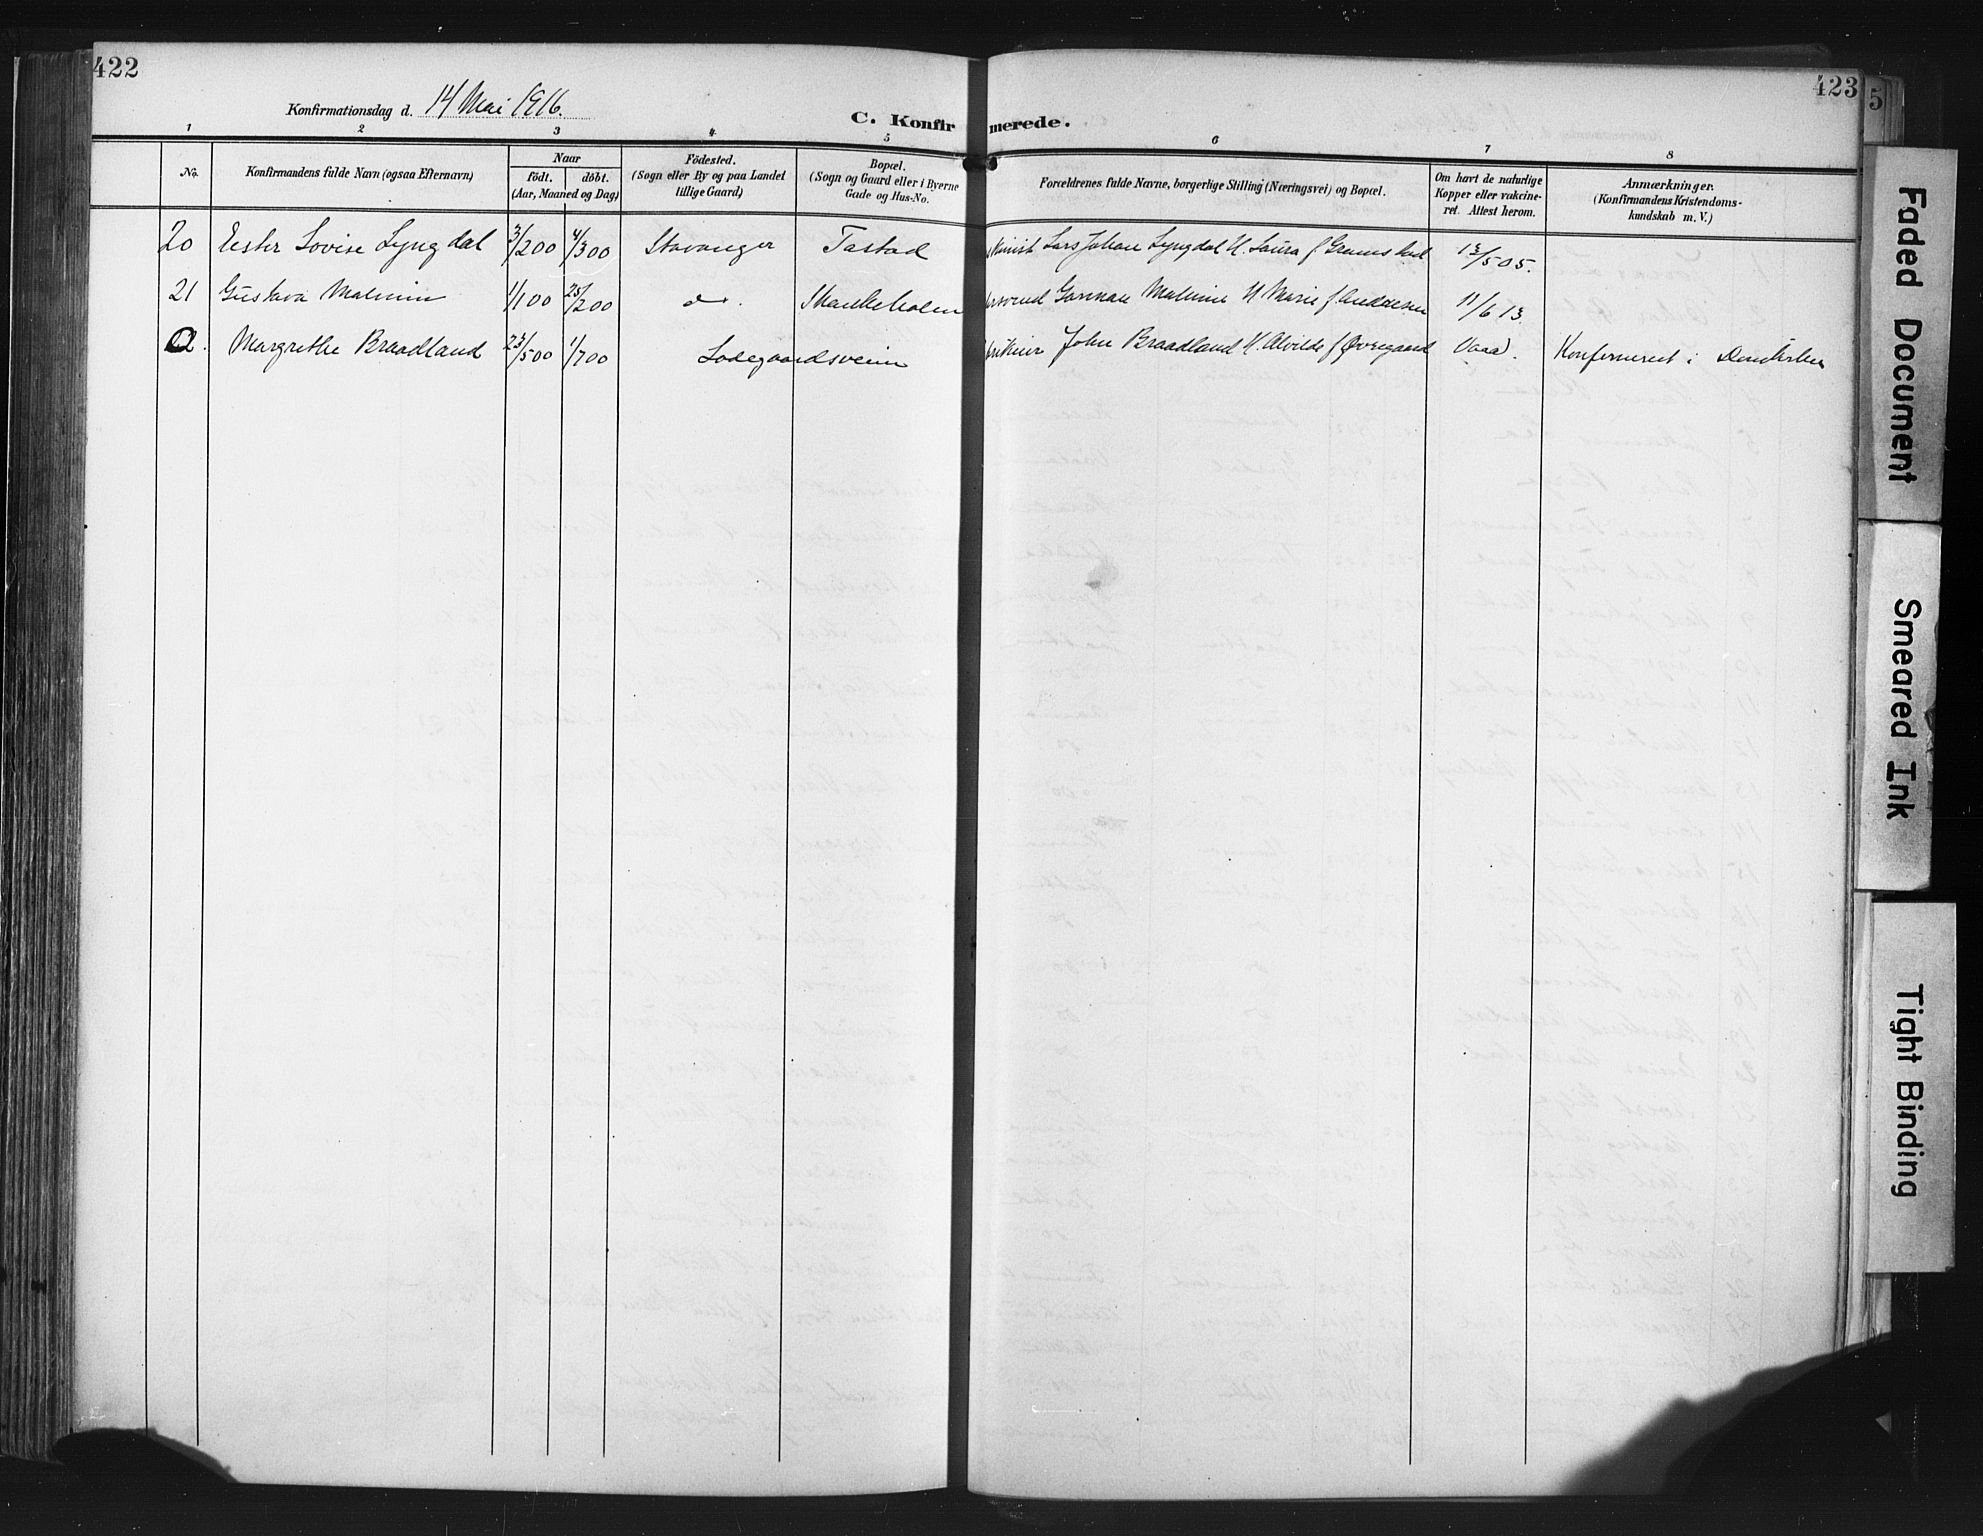 422
423
5
Konfirmationsdag d. 14 Mai 1916.
C. Konfirmerede.
1 2 3 4 5 6 7 8
No. Konfirmandens fulde Navn (ogsaa Efternavn) Naar födt. döbt. (Aar, Maaned og Dag) Födested. (Sogn eller By og paa Landet tillige Gaard) Bopæl. (Sogn og Gaard eller i Byerne Gade og Hus-No. Forældrenes fulde Navne, borgerlige Stilling (Næringsvei) og Bopæl. Om havt de naturlige Kopper eller vakcineret. Attest herom. Anmærkninger. (Konfirmandens Kristendomskundskab m. V.)
20 Ester Lovise Lyngdal 3/2 00 4/3 00 Stavanger Tastad Lars Johan Lyngdal H. Laura f Gramstad 13/5 05.
21 Gustava Malmin 1/1 00 25/2 00 do. Garman Malmin H Marie f Andresen 11/6 13.
Margrethe Braadland 23/5 00 1/7 00 Ladegaardsveien John Braadland H. Alvilde f Øvregaard Vaad. Konfirmeret i Domkirken
Faded Document
Smeared Ink
Tight Binding